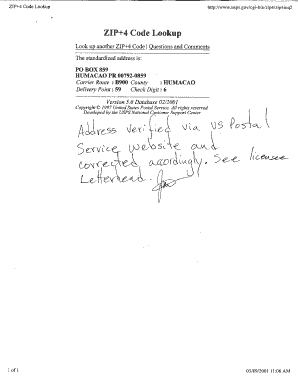 ZIP+4 Code Lookup
ZIP+4 Code Lookup
Look up another ZIP+4 Code | Questions and Comments
The standardized address is:
PO BOX 859
HUMACAO PR 00792-0859
Carrier Route : B900 County : HUMACAO
Delivery Point : 59 Check Digit : 6
Version 5.0 Database 02/2001
Copyright © 1997 United States Postal Service. All rights reserved
Developed by the USPS National Customer Support Center
Address verified via US Postal
Service website and
corrected accordingly. See licensee
Letterhead.
1 of 1
03/09/2001 11:06 AM